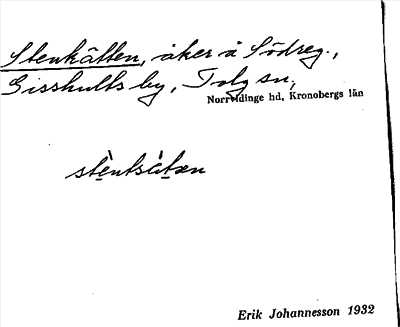 Stenkätten, åker å Södreg.,
Gisshults by, Tolg sn,
Norrvidinge hd, Kronobergs län
stèntsàtæn
Erik Johannesson 1932